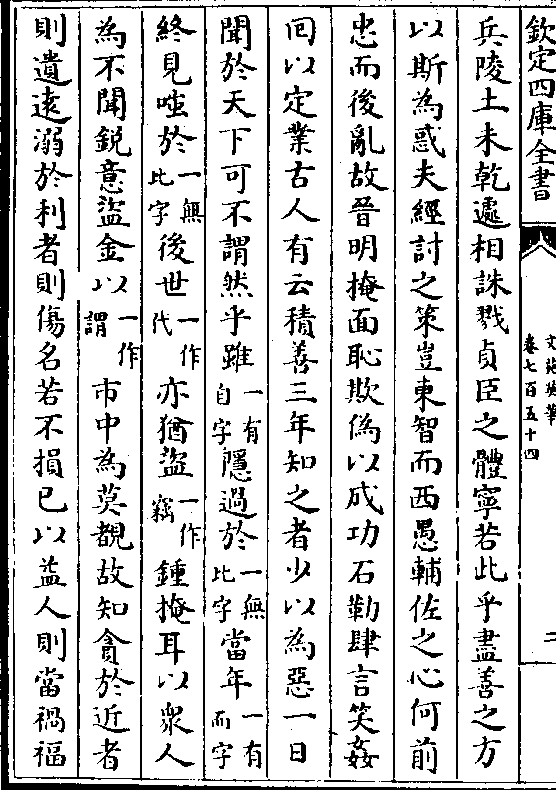 欽定四庫全書
文苑英華
卷七百五十四
二
兵陵土未乾遽相誅戮貞臣之體寧若此乎盡善之方
以斯為惑夫經討之策豈東智而西愚輔佐之心何前
忠而後亂故晉明掩面恥欺偽以成功石勒肆言笑姦
回以定業古人有云積善三年知之者少以為惡一日
聞於天下可不謂然乎雖一有自字隱過於一無此字當年一有而字
終見嗤於一無此字後世一作代亦猶盜一作竊鍾掩耳以衆人
為不聞銳意盜金以一作謂市中為莫覩故知貪於近者
則遺逺溺於利者則傷名若不損已以益人則當禍福